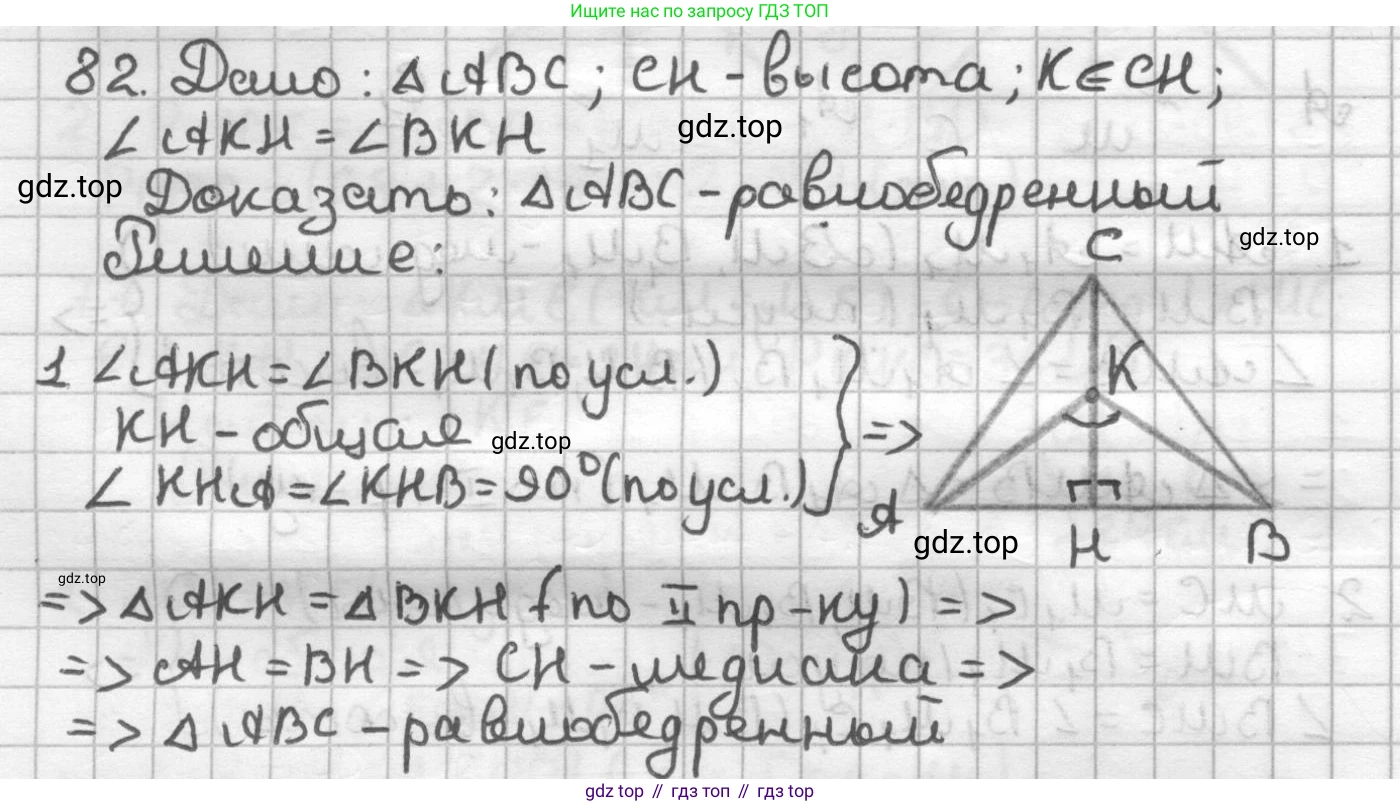 Ищите нас по запросу ГДЗ ТОП
82. Дано: △ABC; CH - высота; K∈CH;
∠AKH = ∠BKH
gdz.top
gdz.top
Доказать: △ABC - равнобедренный
Решение:
gdz.top
C
1 ∠AKH = ∠BKH (по усл.)
K
KH - общая
gdz.top
=>
∠KHA = ∠KHB = 90° (по усл.)
A
gdz.top
H
B
gdz.top
=> △AKH = △BKH (по II пр-ку) =>
=> AH = BH => CH - медиана =>
=> △ABC - равнобедренный
gdz top // гдз топ // гдз top